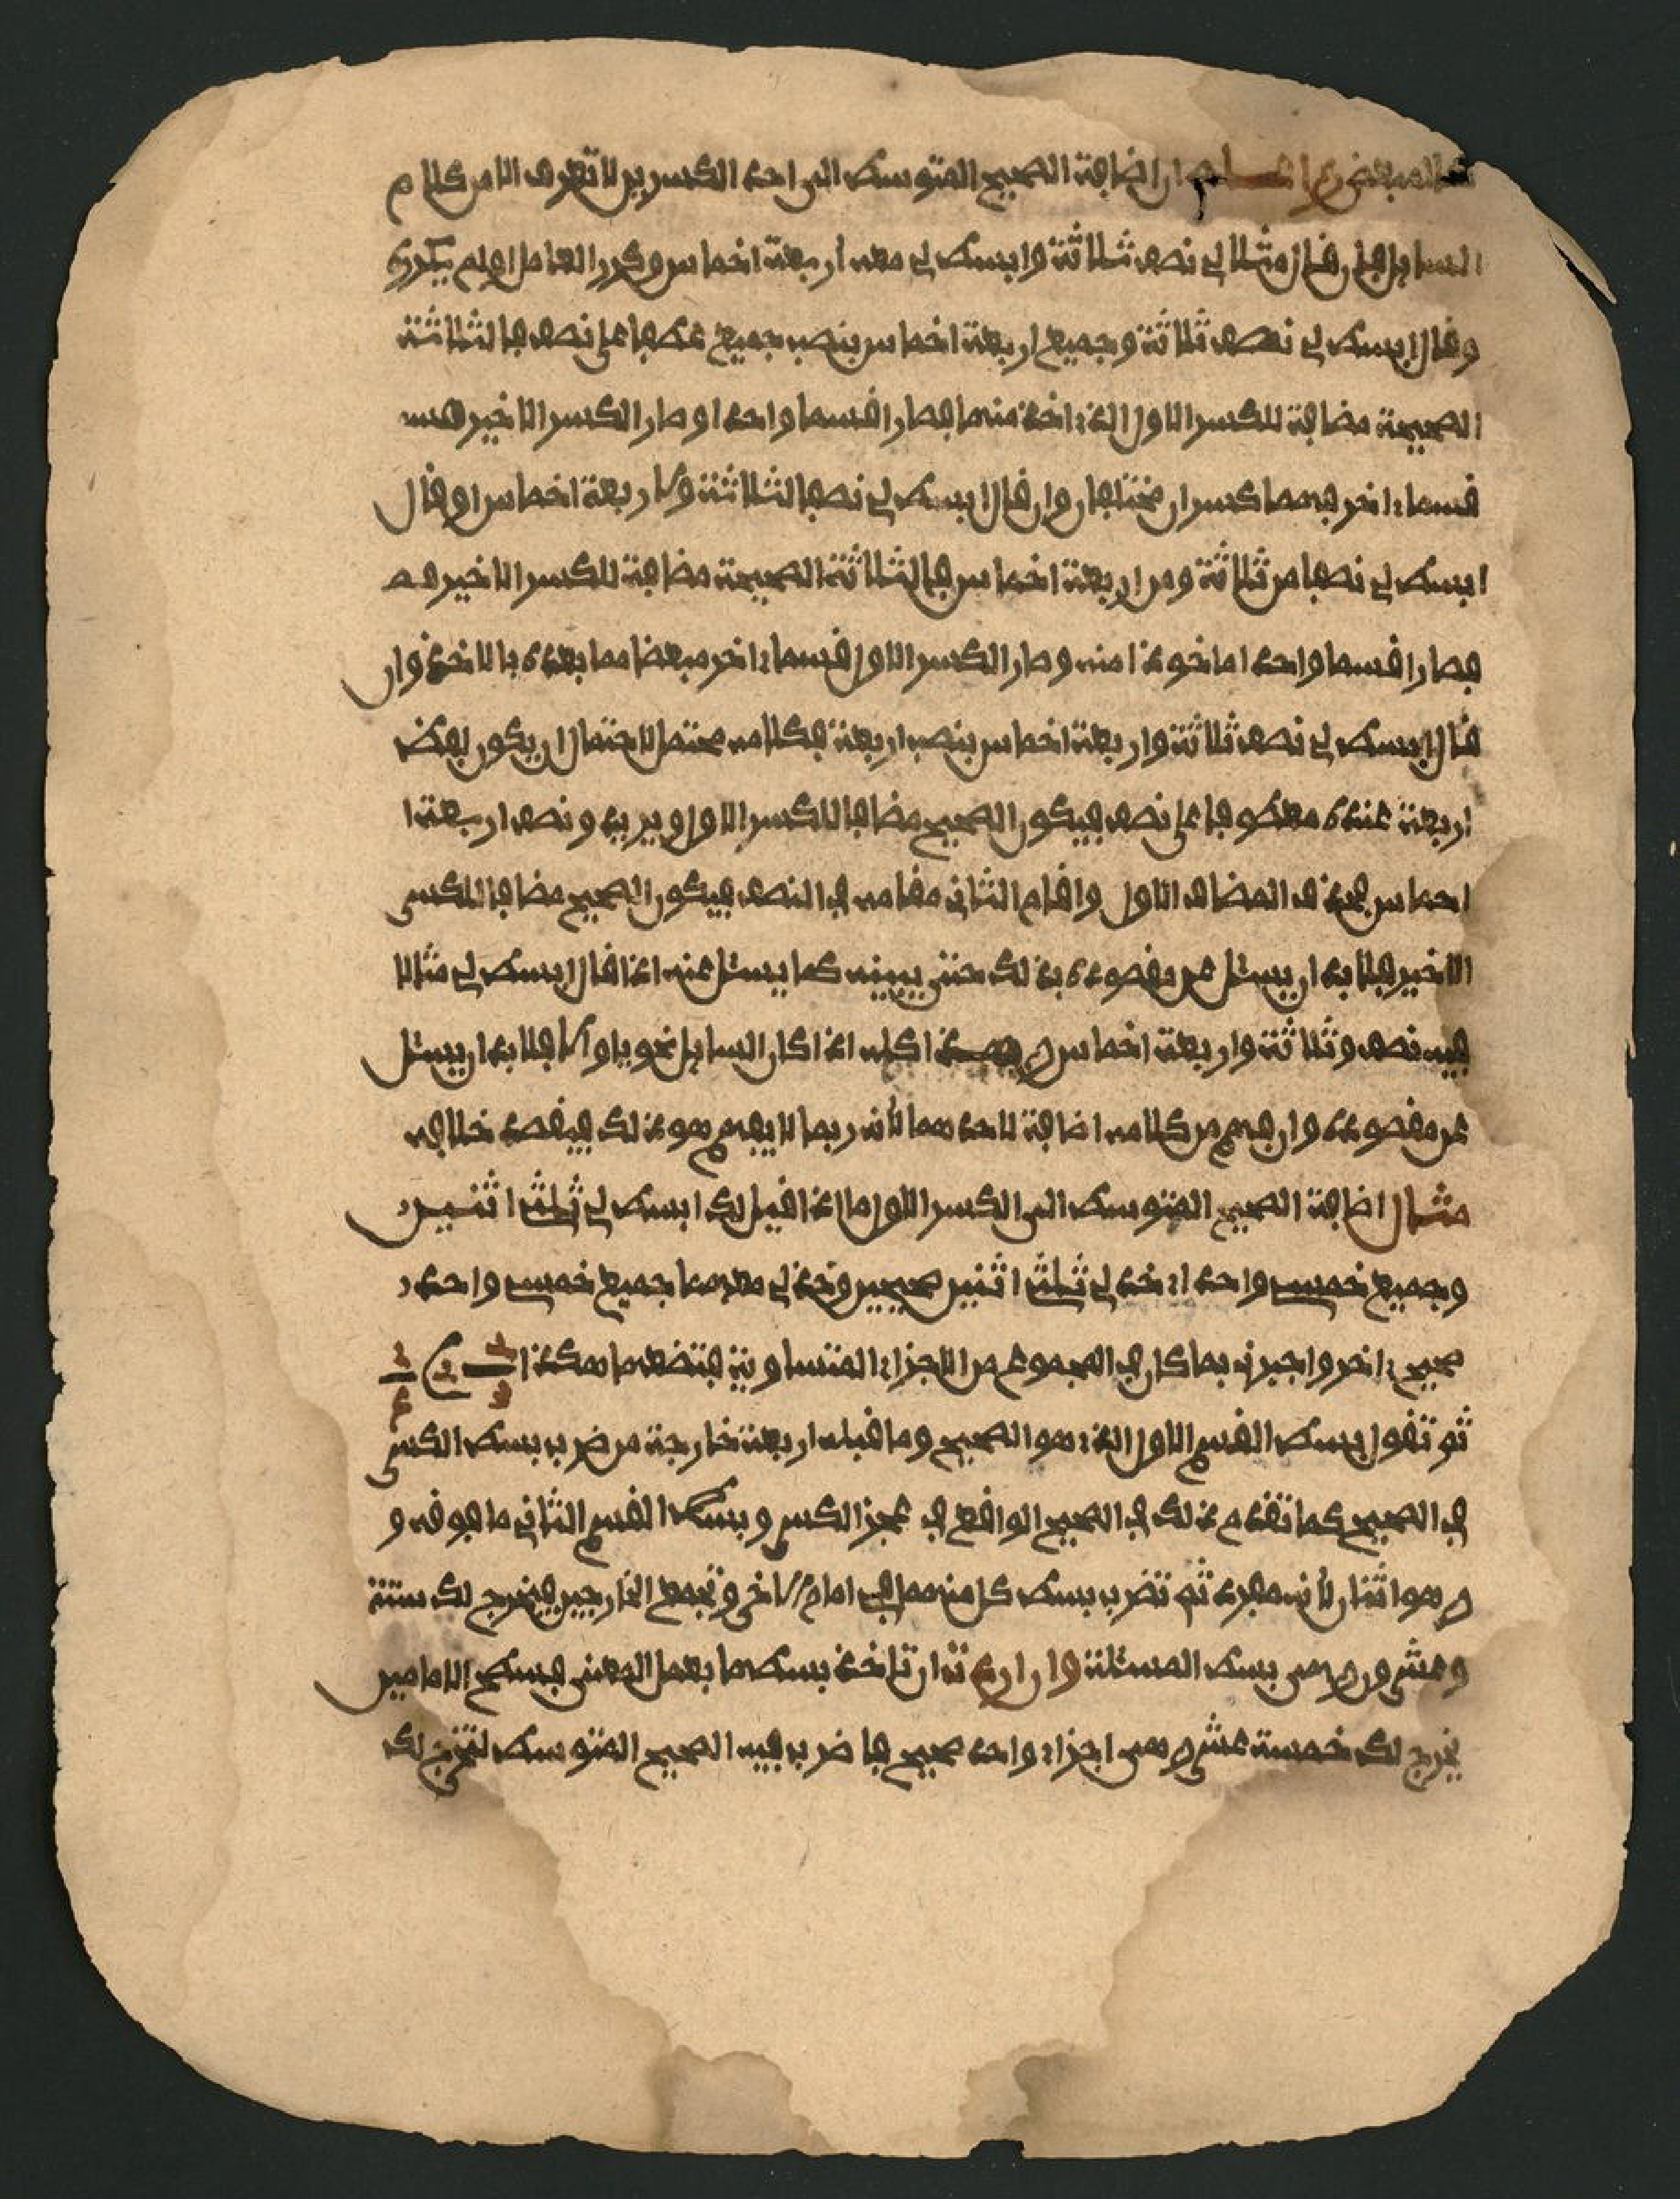 اعلم ان اضافة الصحيح المتوسط الى احد الكسرين لا تعرف الا من كلام
السايل فان قال مثلا لي نصف ثلاثة وابسط لي معه اربعة اخماس وكرر العامل او لم يكرره
وقال ابسط لي نصف ثلاثة وجميع اربعة اخماس بنصب جميع عطفا على نصف فالثلاثة
الصحيحة مضافة للكسر الاول الذي اخذ منها فصارا قسما واحدا وصار الكسر الاخير
قسما اخر فهما كسران مختلفان وان قال ابسط لي نصف الثلاثة والاربعة اخماس او قال
ابسط لي نصفا من ثلاثة ومن اربعة اخماس فالثلاثة الصحيحة مضافة للكسر الاخير
فصارا قسما واحدا ماخوذا منه وصار الكسر الاول قسما اخر مبعضا مما بعده بالاخذ وان
قال ابسط لي نصف ثلاثة واربعة اخماس بنصب اربعة فكلامه محتمل لاحتمال ان يكون لفظ
اربعة عنده معطوفا على نصف فيكون الصحيح مضافا للكسر الاول ويريد ونصف اربعة
اخماس فحذف المضاف الاول واقام الثاني مقامه في النصب فيكون الصحيح مضافا للكسر
الاخير فلا بد ان يسئل عن مقصوده بذلك حتى يبينه كما يسئل عنه اذا قال ابسط لي مثالا
فيه نصف وثلاثة واربعة اخماس وهذا كله اذا كان السايل نحويا والا فلا بد ان يسئل
عن مقصوده وان فهم من كلامه اضافة لاحدهما لانه ربما لا يفهم هو ذلك فيقصد خلافه
مثال اضافة الصحيح المتوسط الى الكسر الاول ما اذا قيل لك ابسط لي ثلثي اثنين
وجميع خمس واحد اي خذ لي ثلثي اثنين صحيحين وخذ لي معهما جميع خمس واحد
صحيح اخر واخبرني بما كان في المجموع من الاجزاء المتساوية فتضعها هكذا
ثم تقول بسط القسم الاول الذي هو الصحيح وما قبله اربعة خارجة من ضرب بسط الكسر
في الصحيح كما تقدم ذلك في الصحيح الواقع في عجز الكسر وبسط القسم الثاني ما فوقه و
هو اثنان لانه مفرد ثم تضرب بسط كل منهما في امام الاخر وتجمع الخارجين فيخرج لك ستة
وعشرون وهي بسط المسئلة وان اردت ان تاخذ بسطها بعمل المعنى فسطح الامامين
يخرج لك خمسة عشر هي اجزاء واحد صحيح فاضرب فيه الصحيح المتوسط لتخرج لك